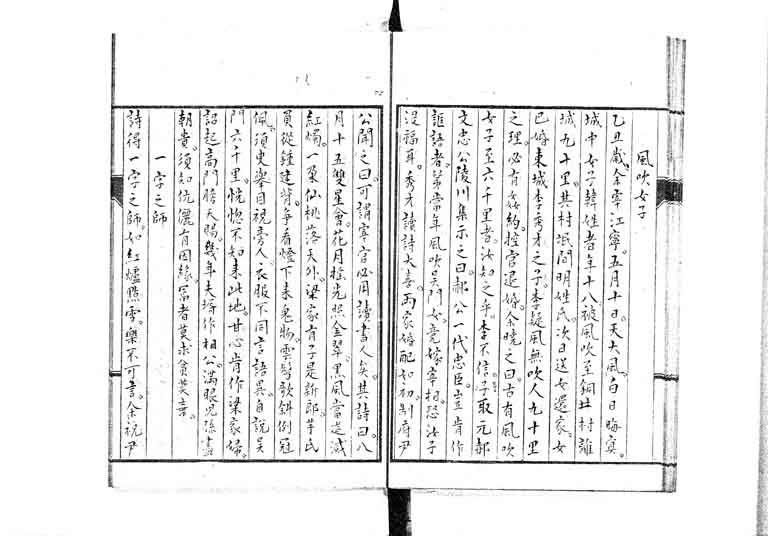 風吹女子
乙丑歲余宰江寧。五月十日。天大風。白日晦冥。
城中女子韓姓者年十八被風吹至銅井村離
城九十里。其村氓問明姓氏。次日送女還家。女
已婚東城李秀才之子。李疑風無吹人九十里
之理。必有姦約。控官退婚。余曉之曰。古有風吹
女子至六千里者。汝知之乎。李不信。予取元郝
文忠公陵川集示之曰。郝公一代忠臣。豈肯作
誑語者。第當年風吹吳門女。竟嫁宰相。恐汝子
沒福耳。秀才讀詩大喜。兩家婚配如初。制府尹
公聞之曰。可謂宰官必用讀書人矣。其詩曰。八
月十五雙星會。花月搖光照金翠。黑風當筵滅
紅燭。一朵仙桃落天外。梁家有子是新郎。芊氏
負從鍾建背。爭看燈下來鬼物。雲鬢欹斜倒冠
佩。須臾舉目視旁人。衣服不同言語異。自說吳
門六千里。恍惚不知來此地。甘心肯作梁家婦。
詔起高門牓天賜。幾年夫壻作相公。滿眼兒孫盡
朝貴。須知伉儷有因緣。富者莫求貧莫棄。
一字之師
詩得一字之師。如紅爐點雪。樂不可言。余祝尹